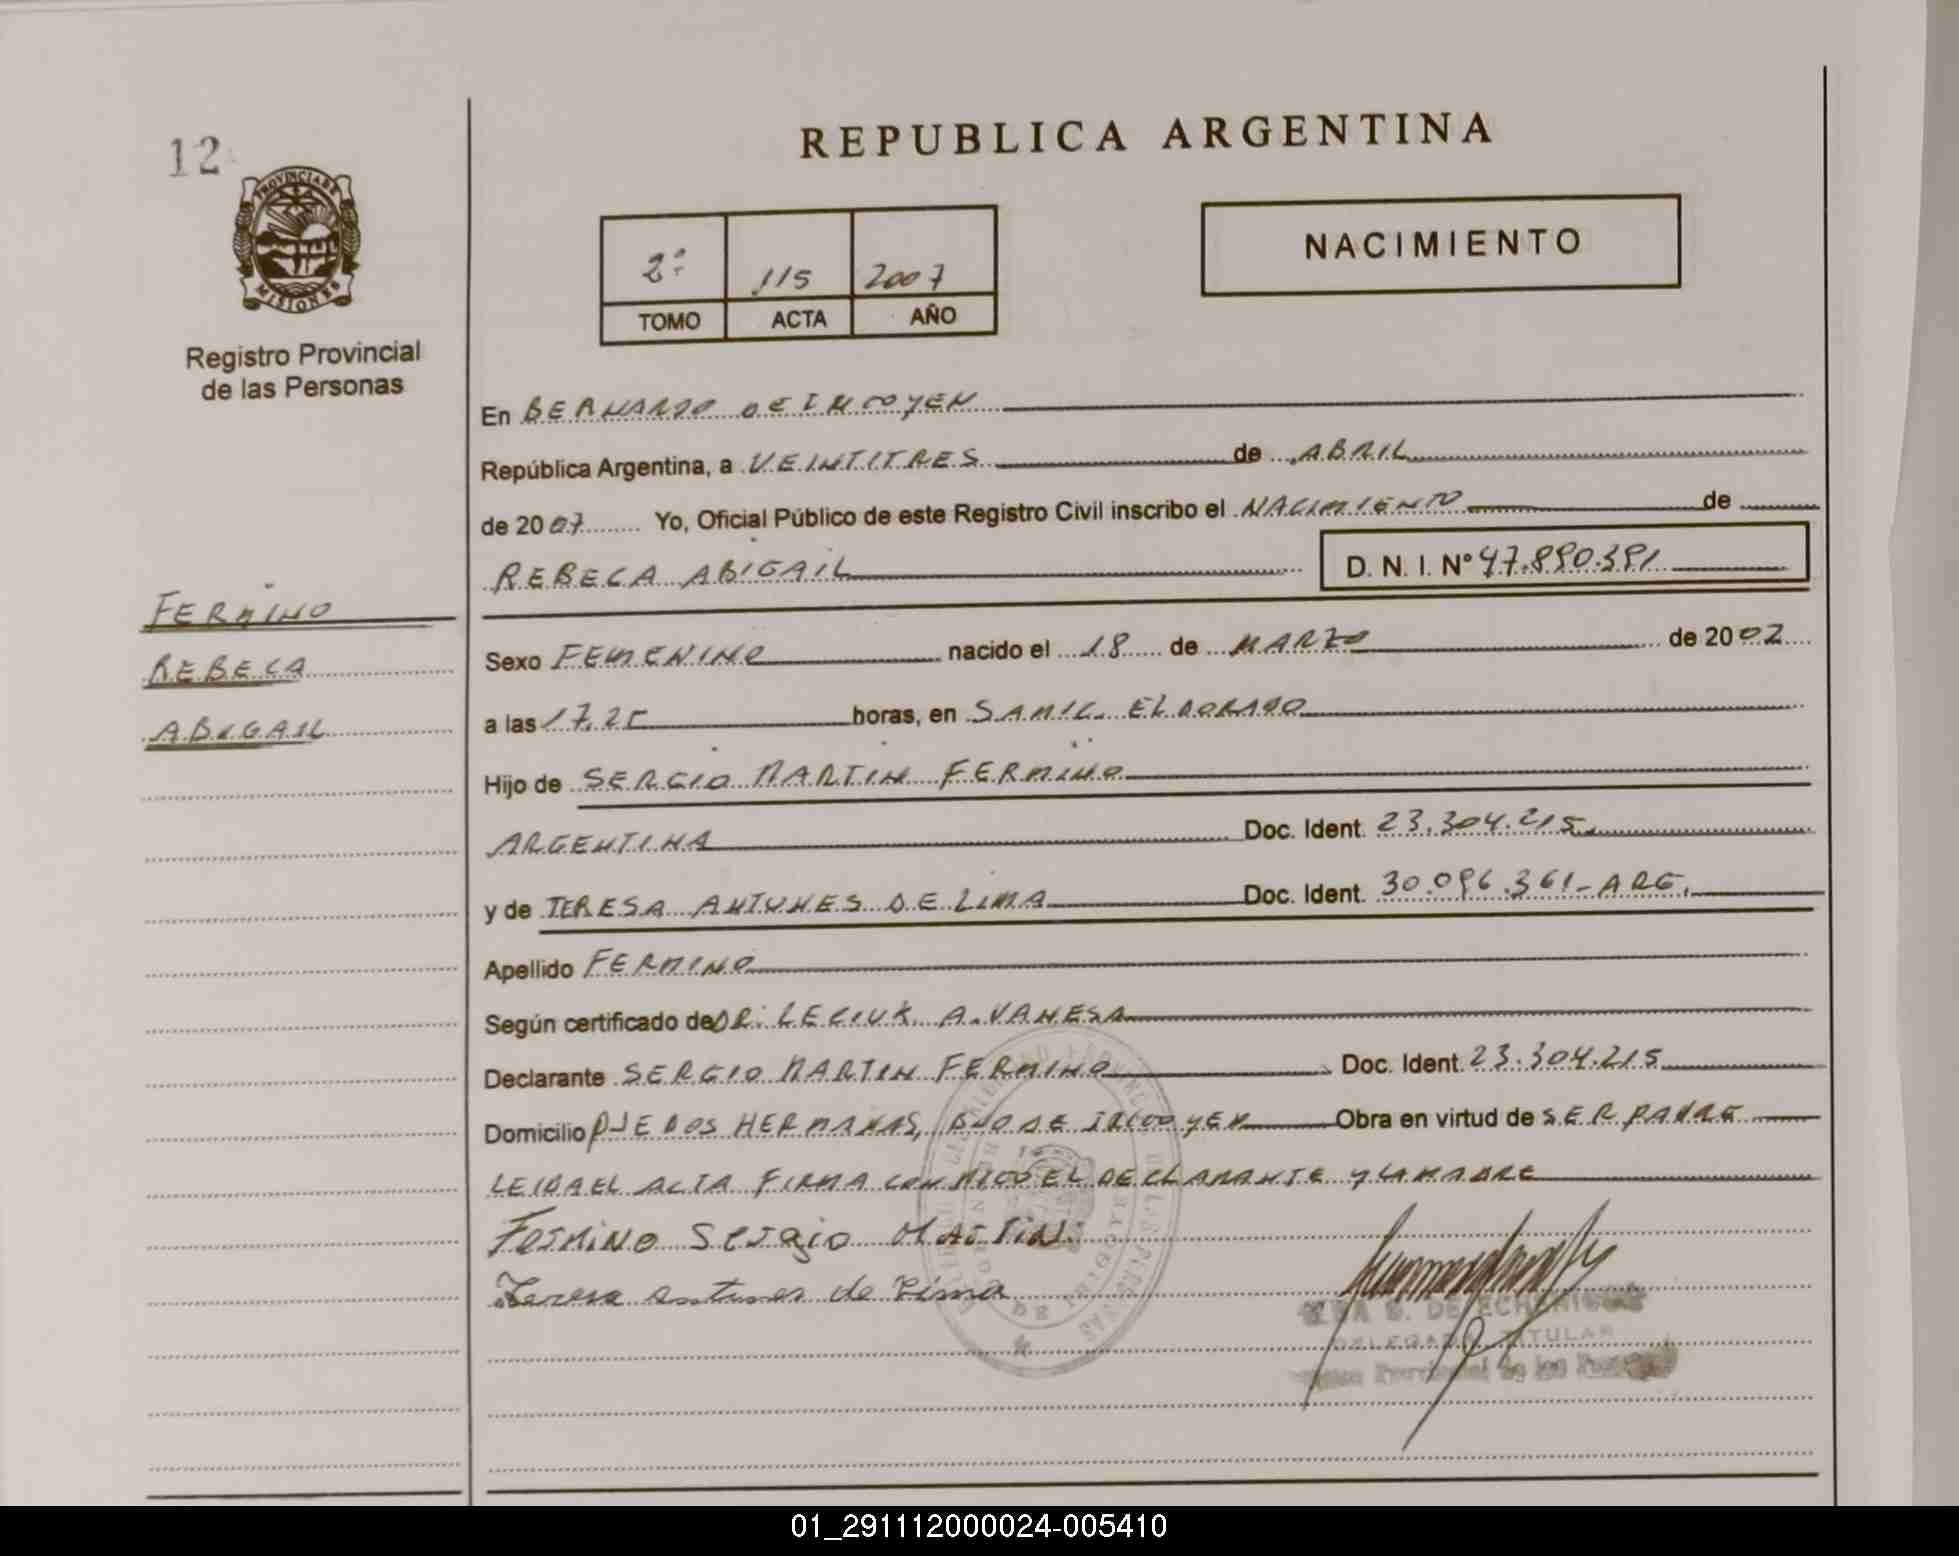 12
REPUBLICA ARGENTINA
PROVINCIA DE
MISIONES
Registro Provincial
de las Personas
2º 115 2007
TOMO ACTA AÑO
NACIMIENTO
En BERNARDO DE IRIGOYEN
República Argentina, a VEINTITRES de ABRIL
de 2007 Yo, Oficial Público de este Registro Civil inscribo el NACIMIENTO de
REBECA ABIGAIL D. N. I. Nº 47.890.391
FERMINO
REBECA
ABIGAIL
Sexo FEMENINO nacido el 18 de MARZO de 2007
a las 17.25 horas, en SAMIC. ELDORADO
Hijo de SERGIO MARTIN FERMINO
ARGENTINA Doc. Ident. 23.304.215
y de TERESA ANTUNES DE LIMA Doc. Ident. 30.096.361-ARG.
Apellido FERMINO
Según certificado de DR. LECIUK A. VANESA
Declarante SERGIO MARTIN FERMINO Doc. Ident. 23.304.215
Domicilio PJE DOS HERMANAS, BDO DE IRIGOYEN Obra en virtud de SER PADRE
LEIDA EL ACTA FIRMA CONMIGO EL DECLARANTE Y LA MADRE
Fermino Sergio Martin
Teresa antunes de Lima
DELEGADA TITULAR
01_291112000024-005410